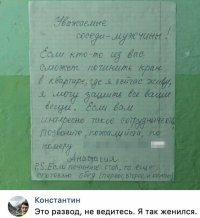 Уважаемые
соседи-мужчины!
Если кто-то из вас
сможет починить кран
в квартире, где я сейчас живу,
я могу зашить все ваши
вещи. Если вам
интересно такое сотрудничес
Позвоните, пожалуйста, по
номеру
Анастасия
P.S. Если почините стол, то ещё
приготовлю обед (первое, второе, и
Константин
Это развод, не ведитесь. Я так женился.